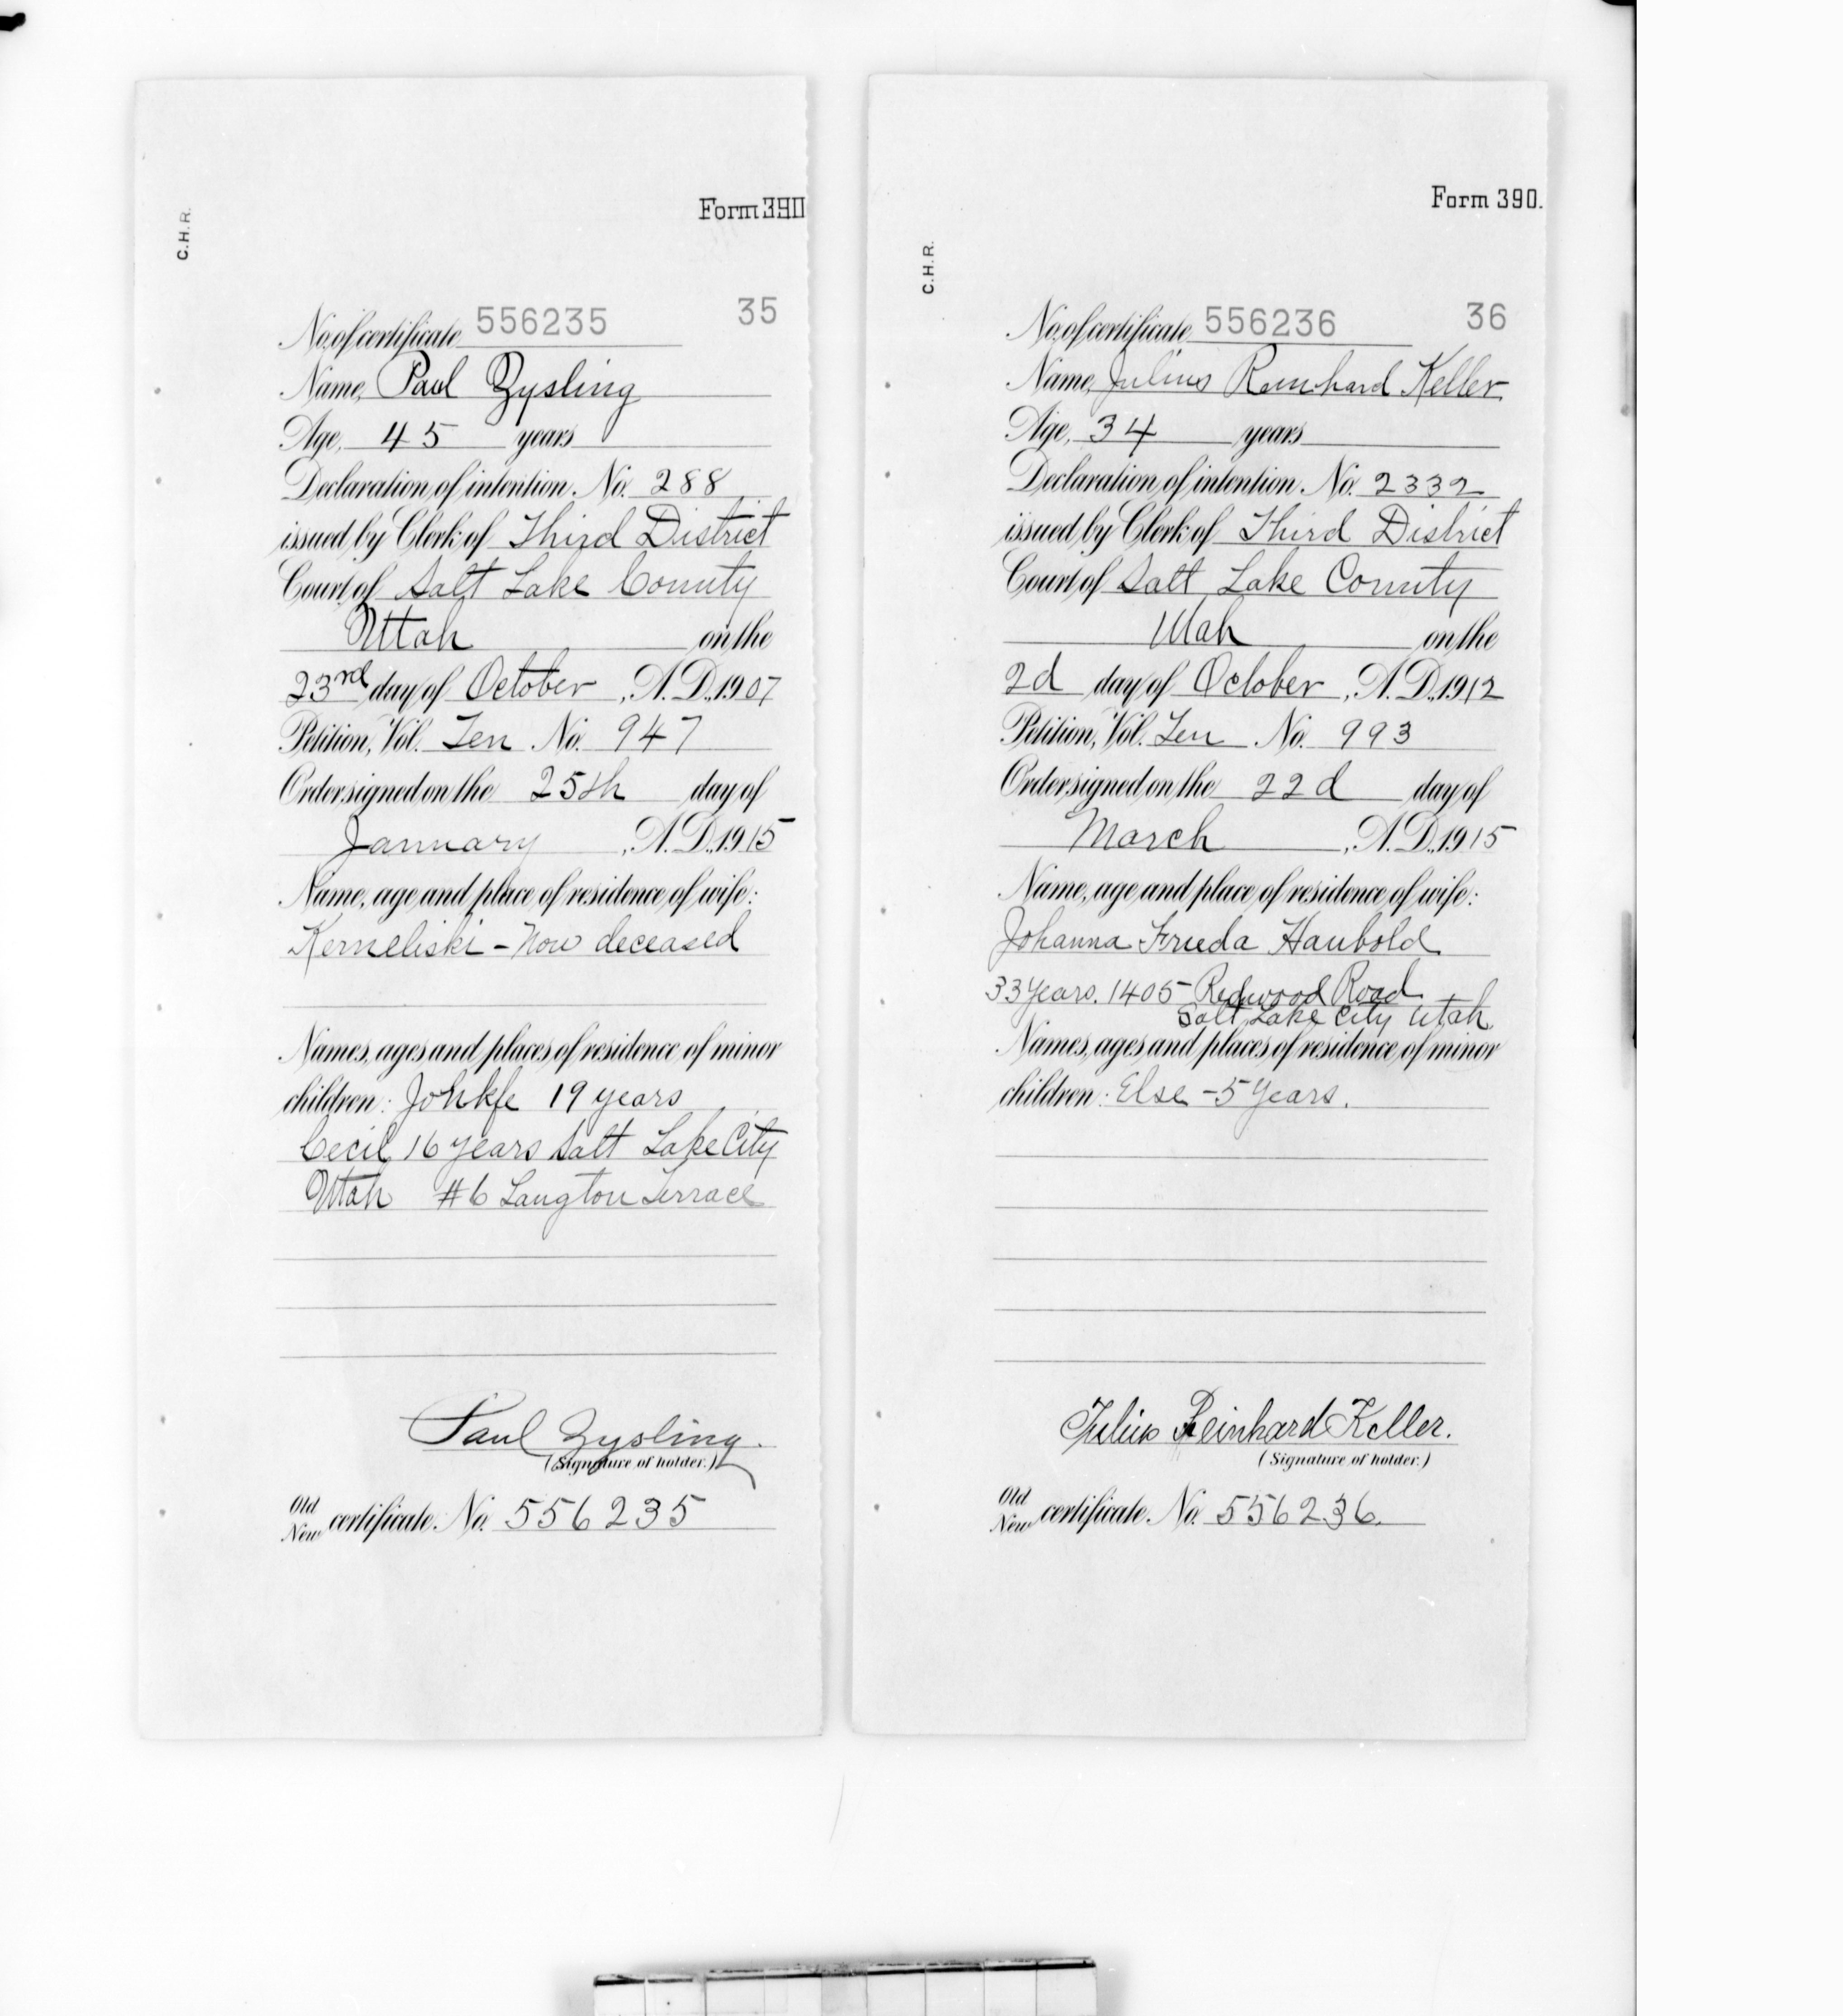 Form 390
C.H.R.
No. of certificate 556235 35
Name, Paul Zysling
Age, 45 years
Declaration of intention. No. 288
issued by Clerk of Third District
Court of Salt Lake County
Utah on the
23rd day of October, A.D. 1907
Petition, Vol. Ten No. 947
Order signed on the 25th day of
January, A.D. 1915
Name, age and place of residence of wife:
Kerneliski - Now deceased
Names, ages and places of residence of minor
children: 19 years
Cecil 16 years Salt Lake City
Utah #6 Langton Terrace
Paul Zysling.
(Signature of holder.)
Old
New certificate. No. 556235
Form 390.
C.H.R.
No. of certificate 556236 36
Name, Julius Reinhard Keller
Age, 34 years
Declaration of intention. No. 2332
issued by Clerk of Third District
Court of Salt Lake County
Utah on the
2d day of October, A.D. 1912
Petition, Vol. Ten No. 993
Order signed on the 22d day of
March, A.D. 1915
Name, age and place of residence of wife:
Johanna Frieda Haubold
33 Years. 1405 Redwood Road
Salt Lake City Utah.
Names, ages and places of residence of minor
children: Else - 5 Years.
Julius Reinhard Keller.
(Signature of holder.)
Old
New certificate. No. 556236.